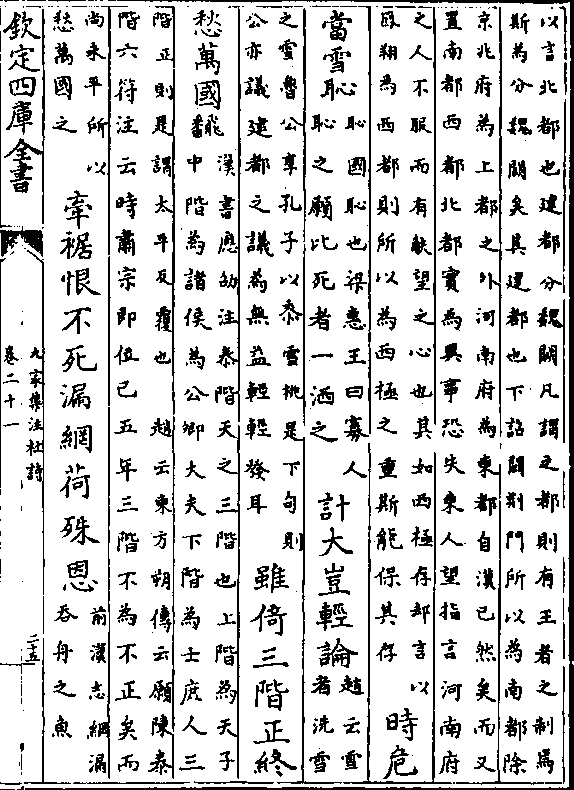 以言北都也建都分魏闕凡謂之都則有王者之制焉
斯為分魏闕矣其建都也下詔闢荆門所以為南都除
京兆府為上都之外河南府為東都自漢已然矣而又
置南都西都北都實為異事恐失東人望指言河南府
之人不服而有觖望之心也其如西極存却言以
鳳翔為西都則所以為西極之重斯能保其存
時危
當雪恥
恥國恥也梁惠王曰寡人
恥之願比死者一洒之
計大豈輕論
趙云雪
者洗雪
之雪魯公享孔子以黍雪桃是下句則
公亦議建都之議為無益輕輕發耳
雖倚三階正終
愁萬國飜
漢書應劭注泰階天之三階也上階為天子
中階為諸侯為公卿大夫下階為士庶人三
階正則是謂太平反覆也 趙云東方朔傳云願陳泰
階六符注云時肅宗即位已五年三階不為不正矣而
尚未平所以
愁萬國之
牽裾恨不死漏網荷殊恩
前漢志網漏
吞舟之魚
欽定四庫全書
九家集注杜詩
卷二十一
二十五